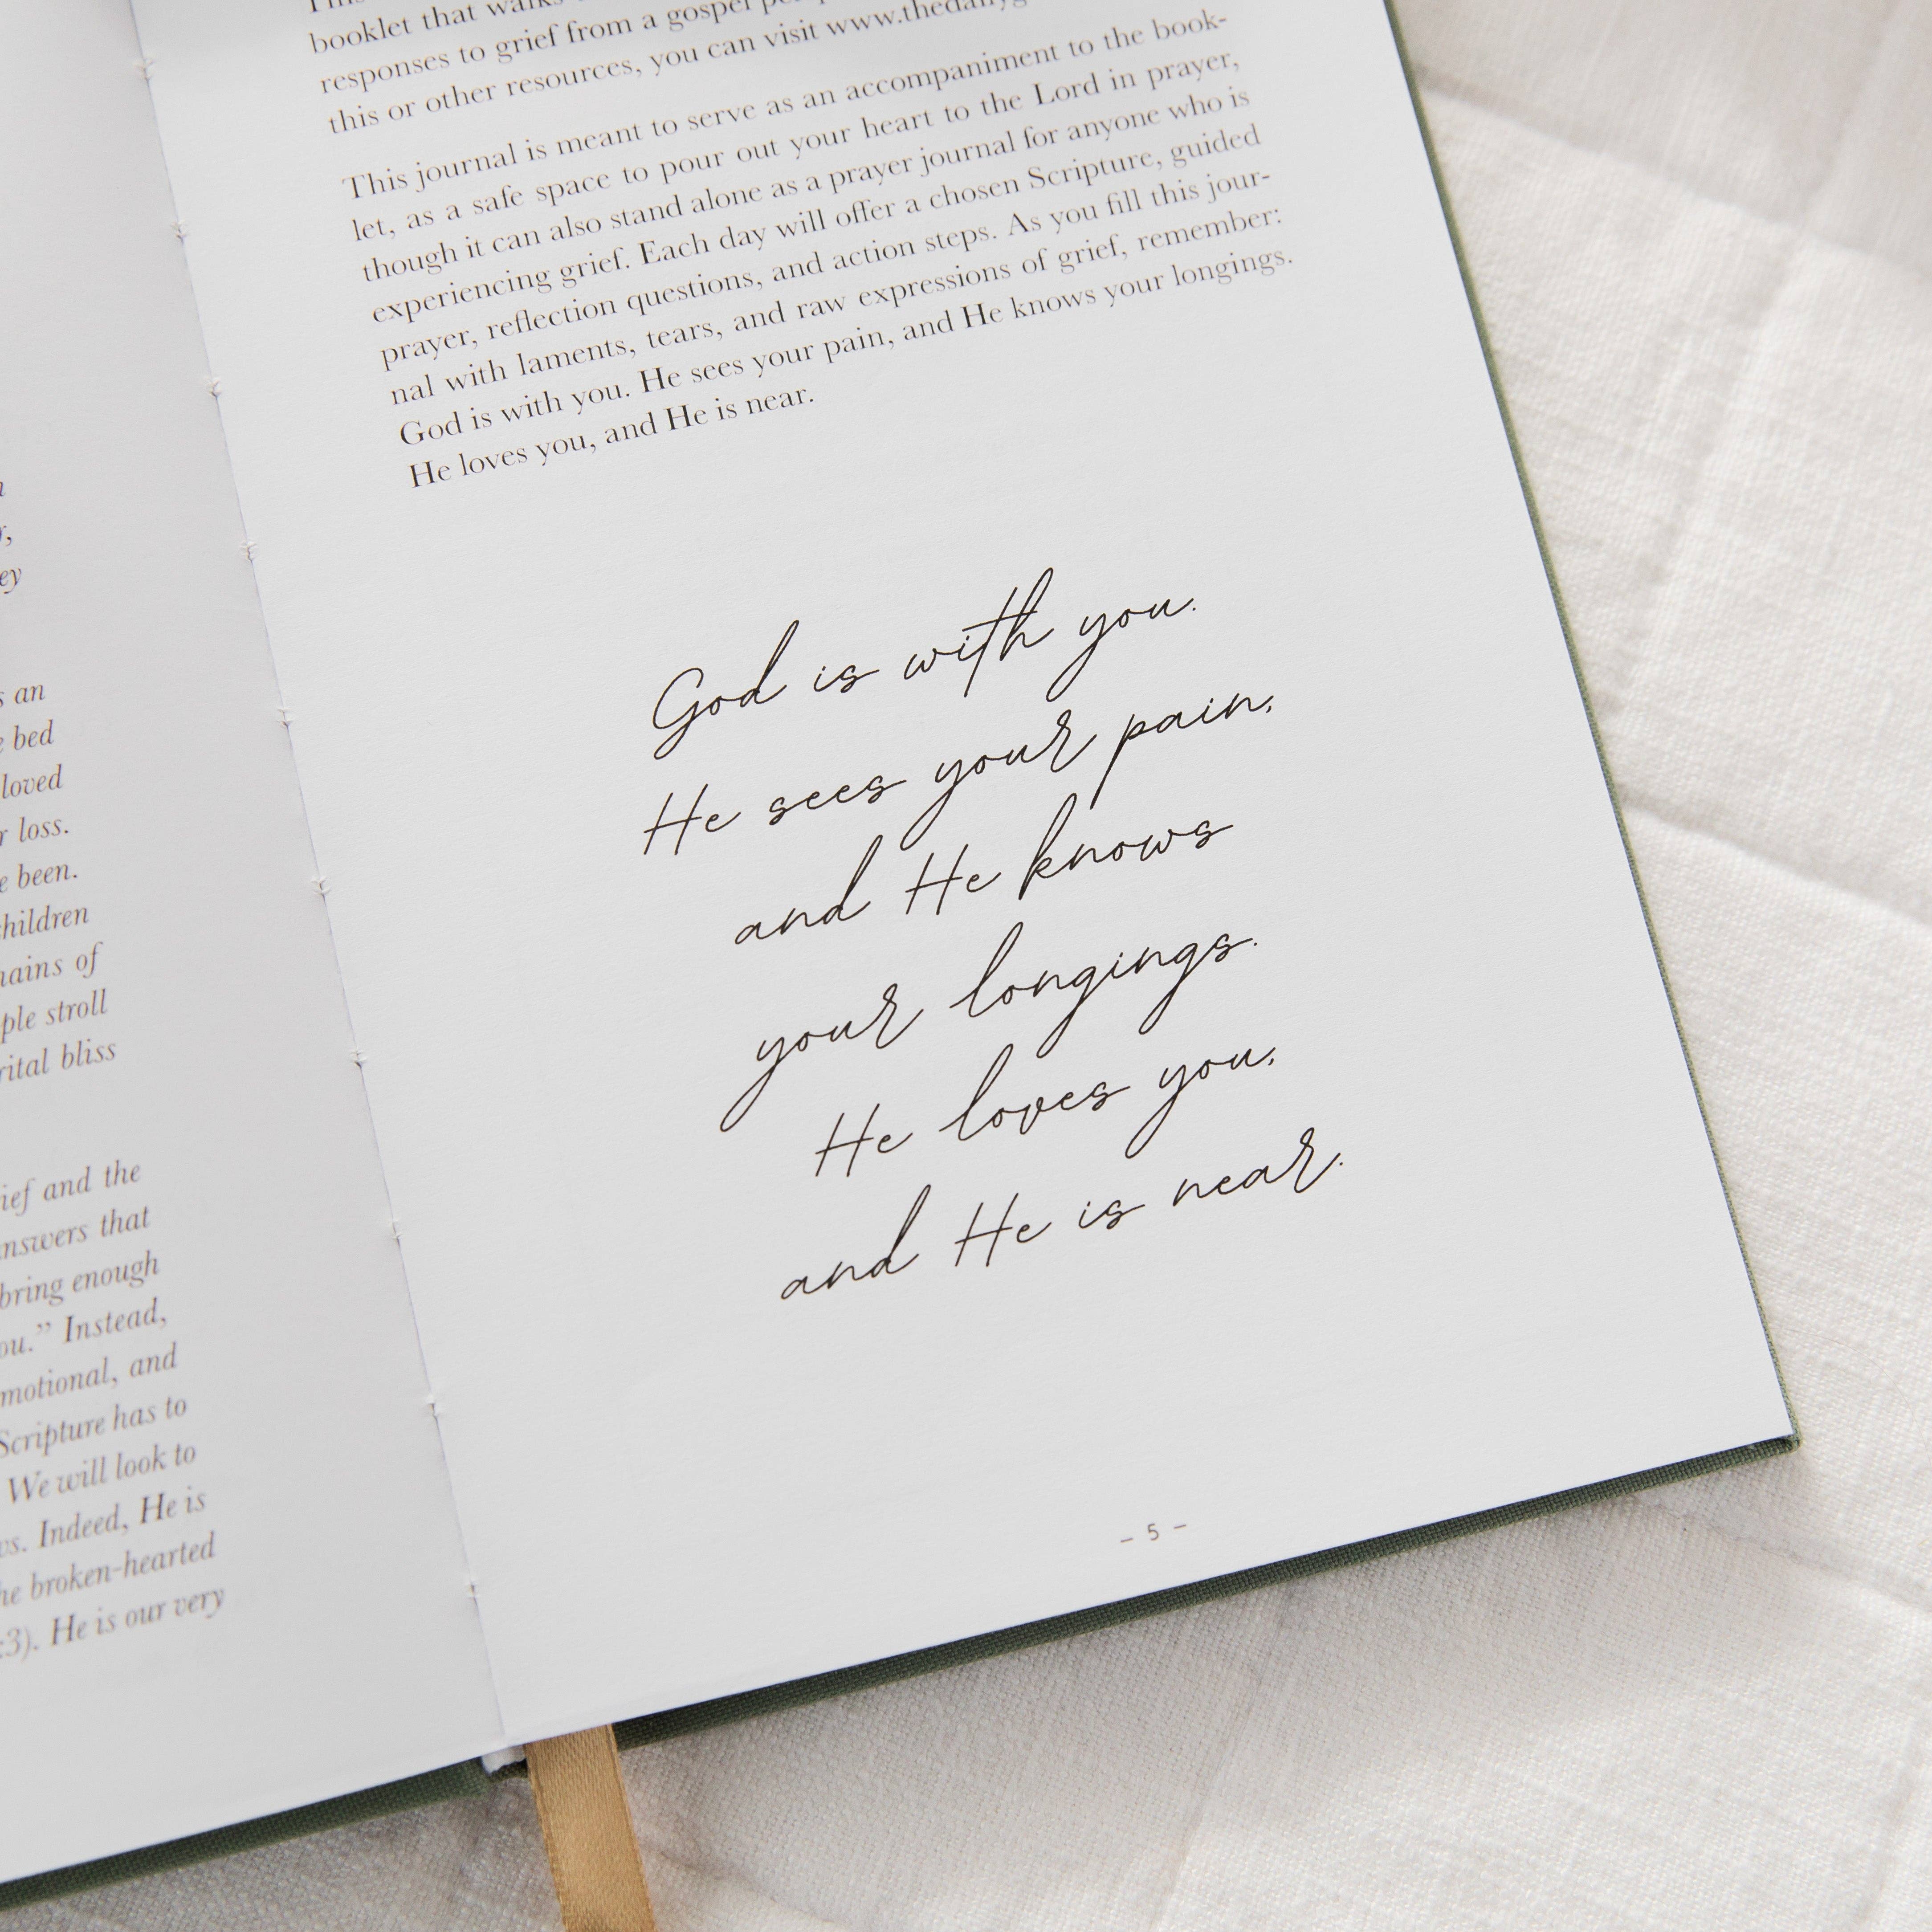 n
r,
ey
s an
e bed
loved
r loss.
e been.
children
mains of
ple stroll
rital bliss
ief and the
nswers that
bring enough
ou.” Instead,
motional, and
Scripture has to
We will look to
vs. Indeed, He is
he broken-hearted
:3). He is our very
booklet that walks
responses to grief from a gospel
this or other resources, you can visit www.thedaily
This journal is meant to serve as an accompaniment to the book-
let, as a safe space to pour out your heart to the Lord in prayer,
though it can also stand alone as a prayer journal for anyone who is
experiencing grief. Each day will offer a chosen Scripture, guided
prayer, reflection questions, and action steps. As you fill this jour-
nal with laments, tears, and raw expressions of grief, remember:
God is with you. He sees your pain, and He knows your longings.
He loves you, and He is near.
God is with you.
He sees your pain,
and He knows
your longings.
He loves you,
and He is near.
– 5 –